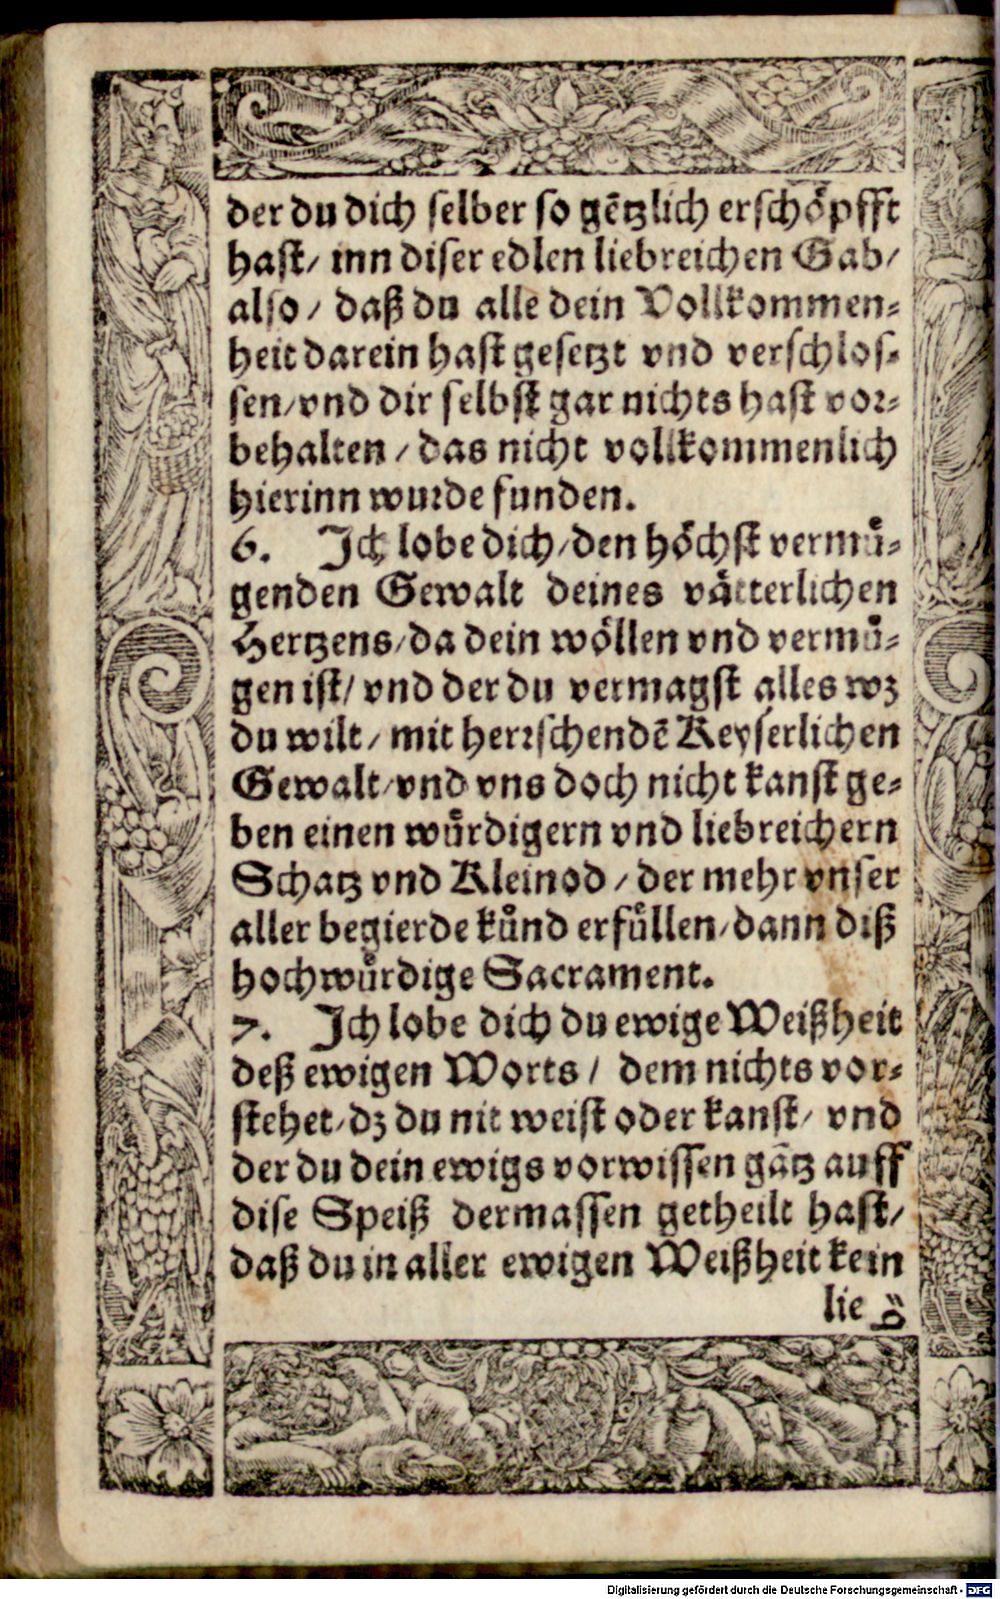 der du dich selber so gẽtzlich erschöpfft
hast/ inn diser edlen liebreichen Gab/
also/ daß du alle dein Vollkommen-
heit darein hast gesetzt vnd verschlos-
sen/vnd dir selbst gar nichts hast vor-
behalten/ das nicht vollkommenlich
hierinn wurde funden.
6. Ich lobe dich/den höchst vermuͤ-
genden Gewalt deines vätterlichen
Hertzens/da dein wöllen vnd vermuͤ-
gen ist/ vnd der du vermagst alles wz
du wilt/ mit herrschendẽ Keyserlichen
Gewalt/vnd vns doch nicht kanst ge-
ben einen wuͤrdigern vnd liebreichern
Schatz vnd Kleinod/ der mehr vnser
aller begierde kuͤnd erfuͤllen/dann diß
hochwuͤrdige Sacrament.
7. Ich lobe dich du ewige Weißheit
deß ewigen Worts/ dem nichts vor-
stehet/dz du nit weist oder kanst/ vnd
der du dein ewigs vorwissen gãtz auff
dise Speiß dermassen getheilt hast/
daß du in aller ewigen Weißheit kein
lie
Digitalisierung gefördert durch die Deutsche Forschungsgemeinschaft - DFG